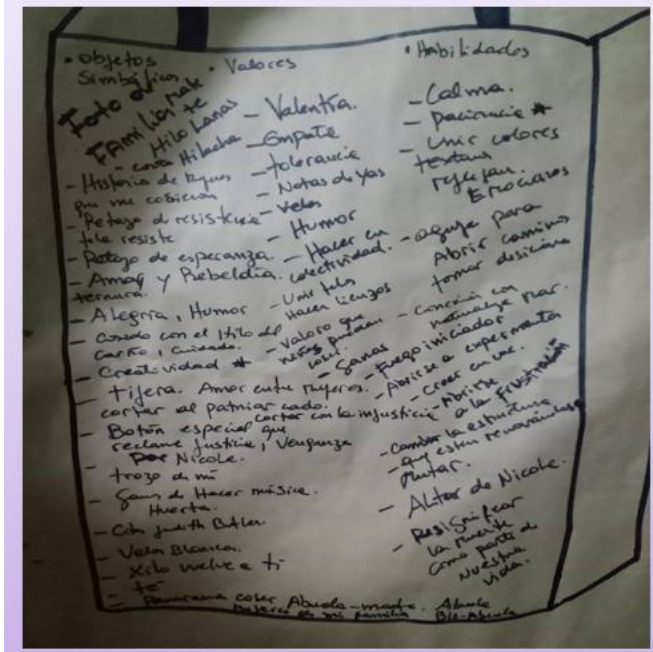 • Objetos Simbólicos
Foto
Familia
Hilo Lanas
- Historia de
que me cobician
- Retazo de resistencia
tela resiste
- Retazo de esperanza.
- Amor y Rebeldía.
ternura.
- Alegría, Humor
- con el Hilo del
cariño, cuidado.
- Creatividad *
- tijera. Amor entre mujeres.
cortar al patriarcado.
- Botón especial que
reclame justicia, Venganza
por Nicole.
- trozo de mí
- Ganas de Hacer música.
Huerta.
- Cita Judith Butler.
- Velas Blancas.
- Xilo vuelve a ti
- té
- Panorama coser Abuela-madre. Abuela
de mi familia Bis-Abuela
• Valores
- Valentía.
- Empatía
- tolerancia
- Notas de
- Velos
- Humor
- Hacer en
colectividad.
- Unir telas
Hacer lienzos
- Valoro que
puedan
coser.
- Sanas
cortar con la injusticia
• Habilidades
- Calma.
- paciencia *
- Unir colores
texturas
reflejan
Emociones
- aguja para
Abrir caminos
tomar
- Conexión con
naturaleza mar.
- Fuego iniciador
- Abrirse a experimentar
- Creer en
- Abrirse
a la frustración
- Cambiar la estructura
- que estén
- Altar de Nicole.
- Resignificar
la muerte
como parte de
nuestra
vida.